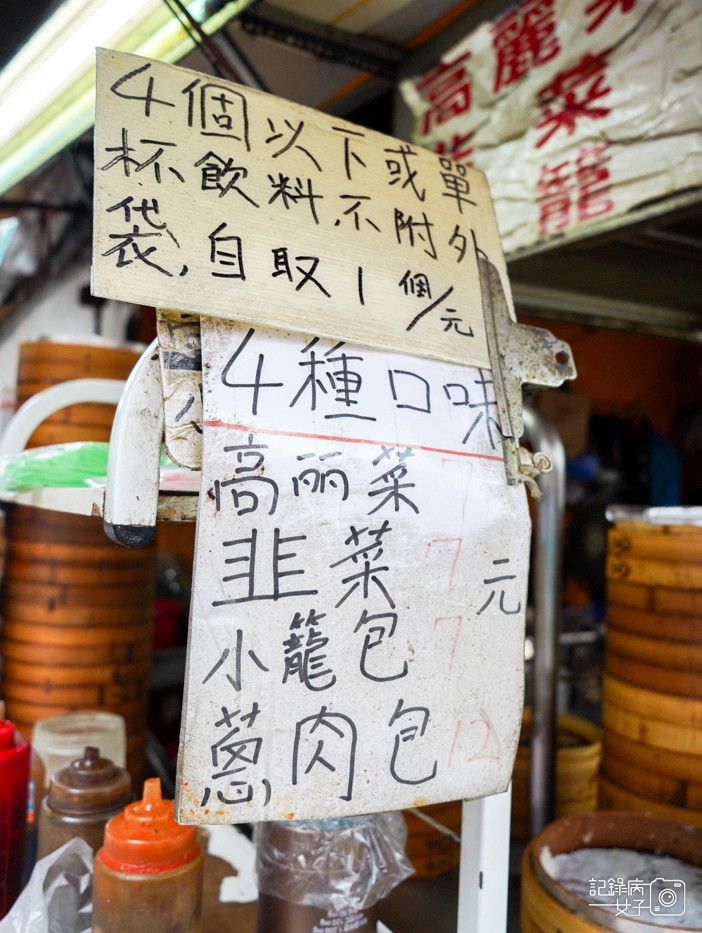 4個以下或單
杯飲料,不附外
袋,自取1個/元
4種口味
高丽菜 7
韭菜 7 元
小籠包 7
蔥肉包 12
高麗菜
菜籠
記錄病
女子